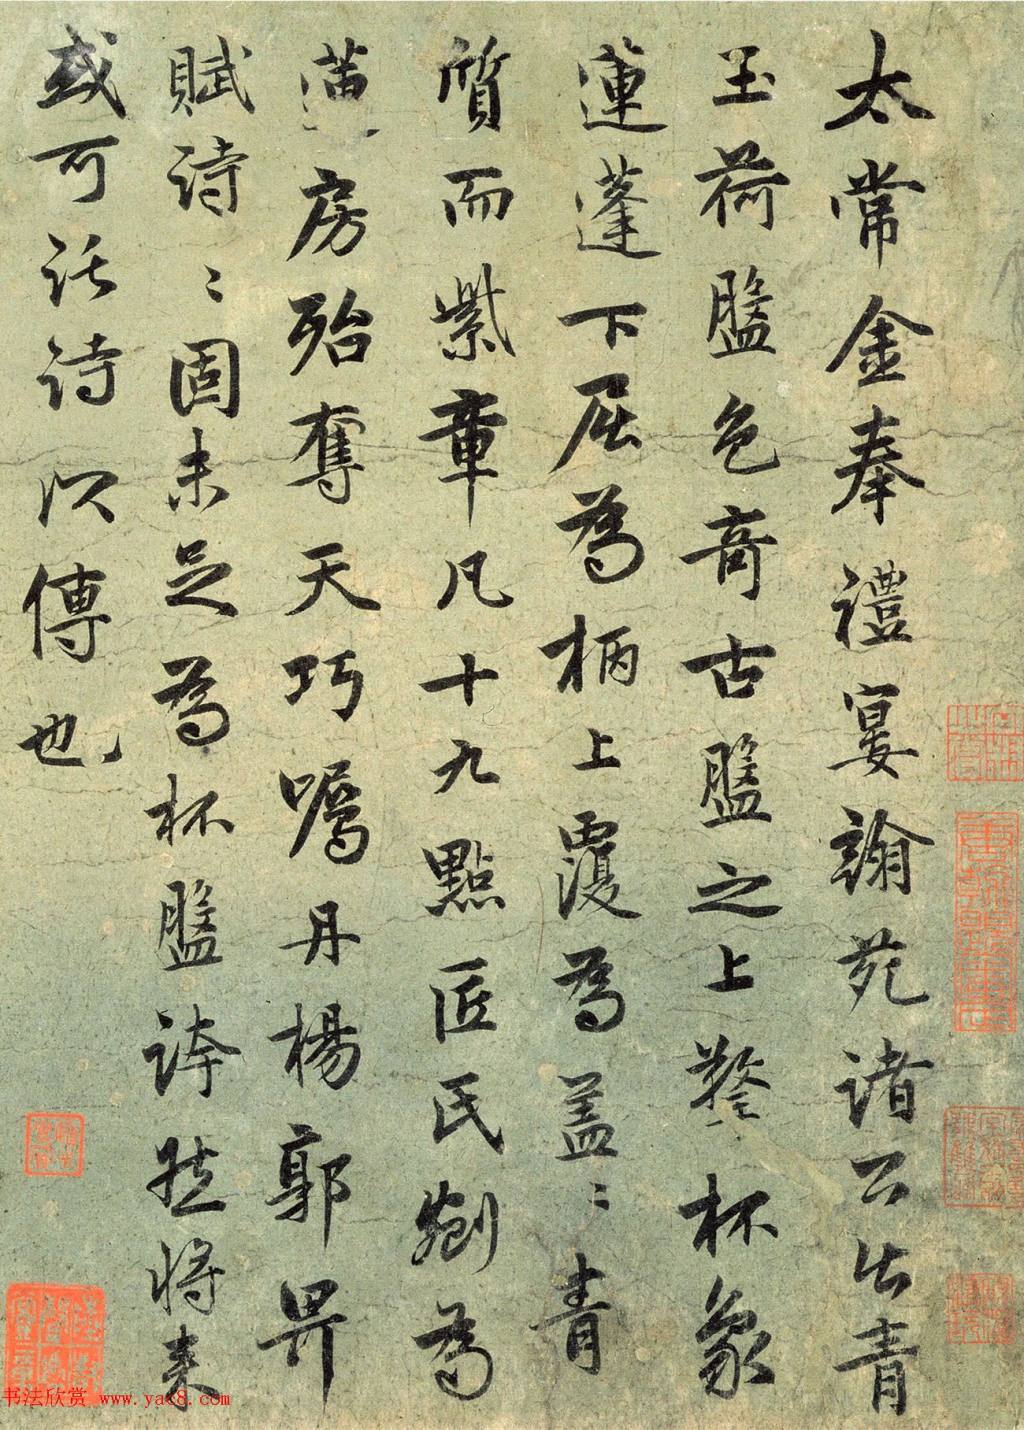 太常金奉禮宴翰苑諸公出青
玉荷盤色奇古盤之上擎杯象
蓮蓬下屈為柄上覆為蓋〻青
質而紫章凡十九點匠氏劚為
蓮房殆奪天巧囑丹楊郭畀
賦詩〻固未足為杯盤誇然將来
或可託詩以傳也
书法欣赏 www.yac8.com